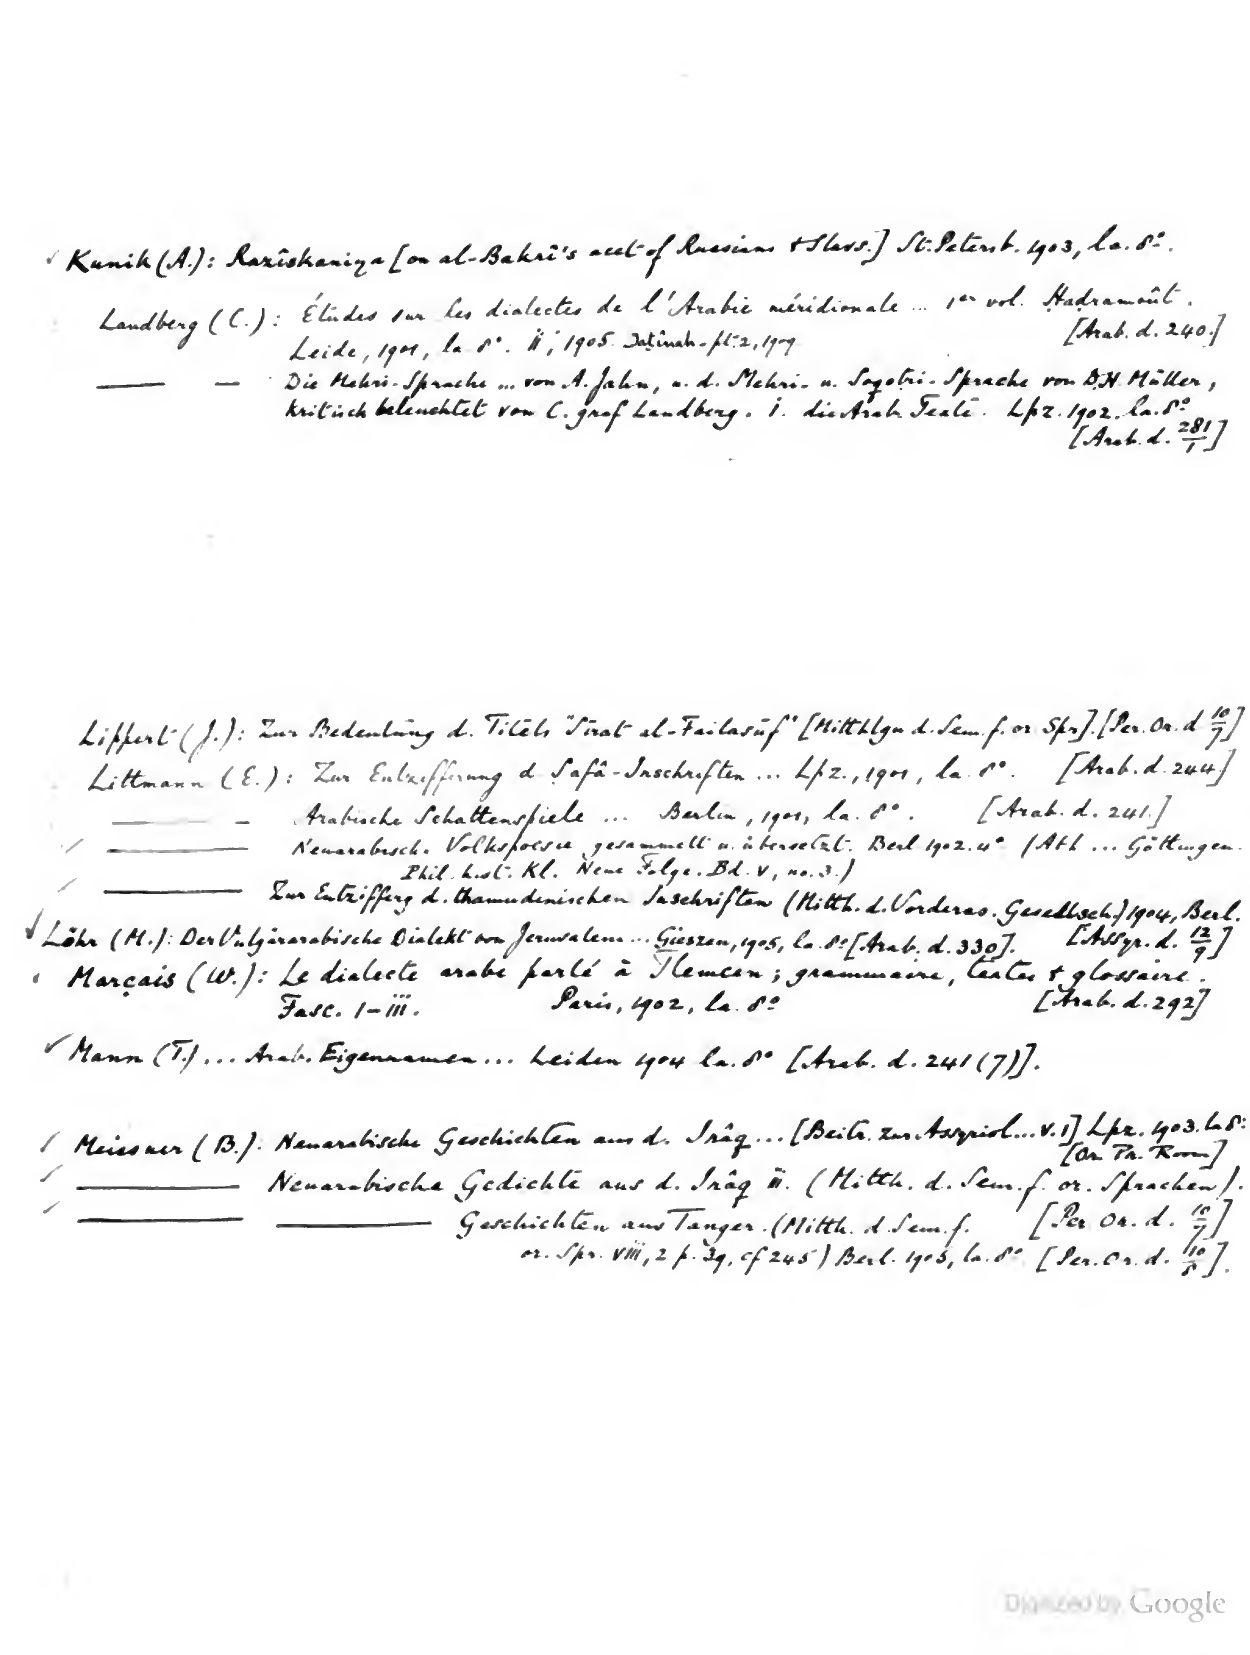 ✓ Kunik (A.): Razîskaniya [on al-Bakrî's acct of Russians & Slavs.] St. Petersb. 1903, la. 8º.
Landberg (C.): Études sur les dialectes de l'Arabie méridionale ... 1er vol. Ḥaḍramoût.
Leide, 1901, la 8º. ii, 1905. Datînah - pt. 2, 1909 [Arab. d. 240.]
—— — Die Mehri-Sprache ... von A. Jahn, u. d. Mehri- u. Soqotri-Sprache von D. H. Müller,
kritisch beleuchtet von C. graf Landberg. i. die Arab. Texte. Lpz. 1902. la. 8º
[Arab. d. 281/1]
Lippert (J.): Zur Bedeutung d. Titels "Sîrat al-Failasûf" [Mitthlgn d. Sem. f. or. Spr]. [Per. Or. d 10/7]
Littmann (E.): Zur Entzifferung d Ṣafâ-Inschriften ... Lpz., 1901, la. 8º. [Arab. d. 244.]
—— — Arabische Schattenspiele ... Berlin, 1901, la. 8º. [Arab. d. 241.]
✓ —— Neuarabisch. Volkspoesie gesammelt u. übersetzt. Berl. 1902. 4º (Abh ... Göttingen.
Phil. hist. Kl. Neue Folge. Bd. V, no. 3.)
✓ —— Zur Entzifferg d. thamudenischen Inschriften (Mitth. d. Vorderas. Gesellsch.) 1904, Berl.
✓ Löhr (M.): Der Vulgärarabische Dialekt von Jerusalem ... Gieszen, 1905, la. 8º [Arab. d. 330]. [Assyr. d. 12/9]
Marçais (W.): Le dialecte arabe parlé à Tlemcen; grammaire, textes & glossaire.
Fasc. 1–iii. Paris, 1902, la. 8º [Arab. d. 292]
✓ Mann (T.) ... Arab. Eigennamen ... Leiden 1904 la. 8º [Arab. d. 241 (7)].
✓ Meissner (B.): Neuarabische Geschichten aus d. Irâq ... [Beitr. zur Assyriol... v. 1] Lpz. 1903. la 8º
[Or. Pr. Room]
✓ —— Neuarabische Gedichte aus d. Irâq ii. (Mitth. d. Sem. f. or. Sprachen).
✓ —— —— Geschichten aus Tanger. (Mitth. d. Sem. f. [Per Or. d. 10/7]
or. Spr. viii, 2 p. 39, cf 245) Berl. 1905, la. 8º [Per. Or. d. 10/8].
Digitized by Google